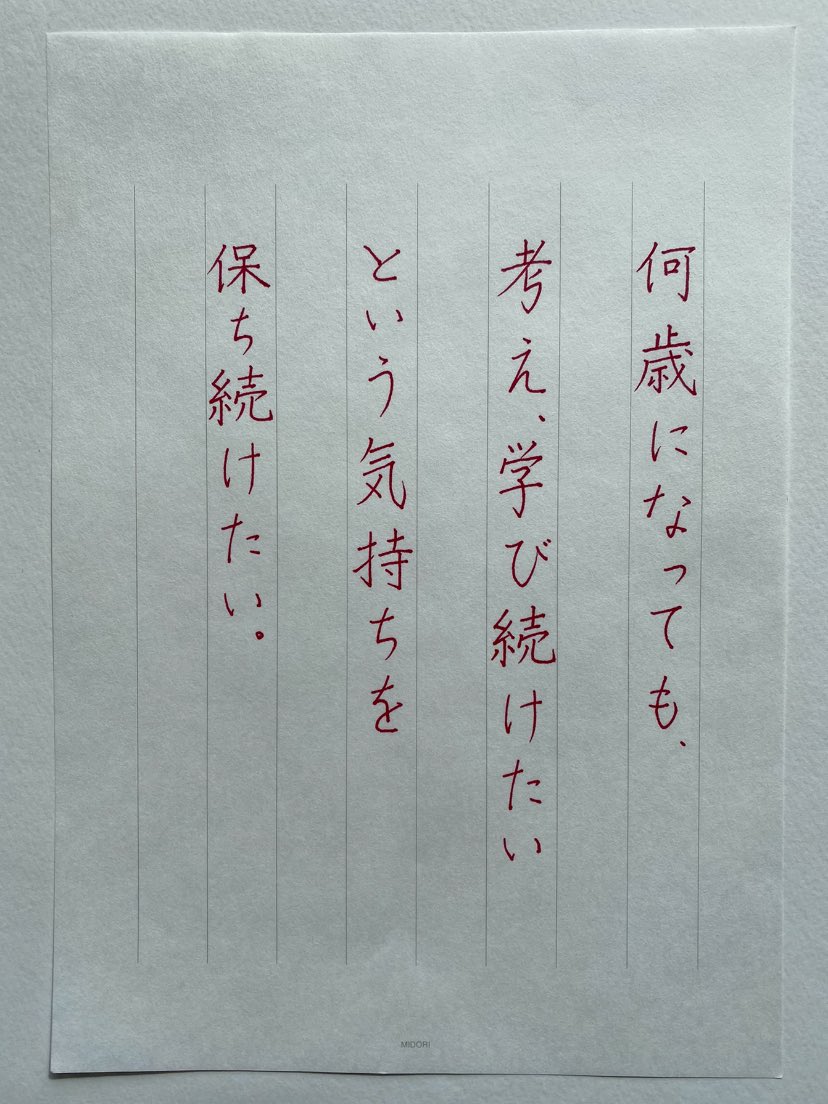 何歳になっても、
考え、学び続けたい
という気持ちを
保ち続けたい。
MIDORI